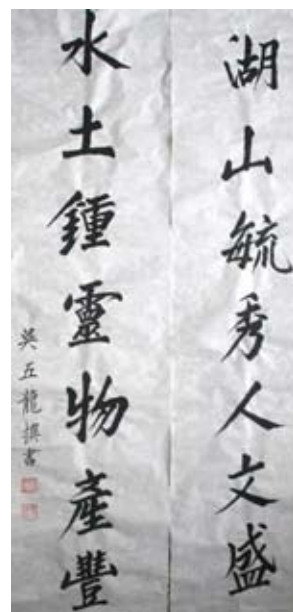 湖山毓秀人文盛
水土鍾靈物產豐
吳五龍撰書